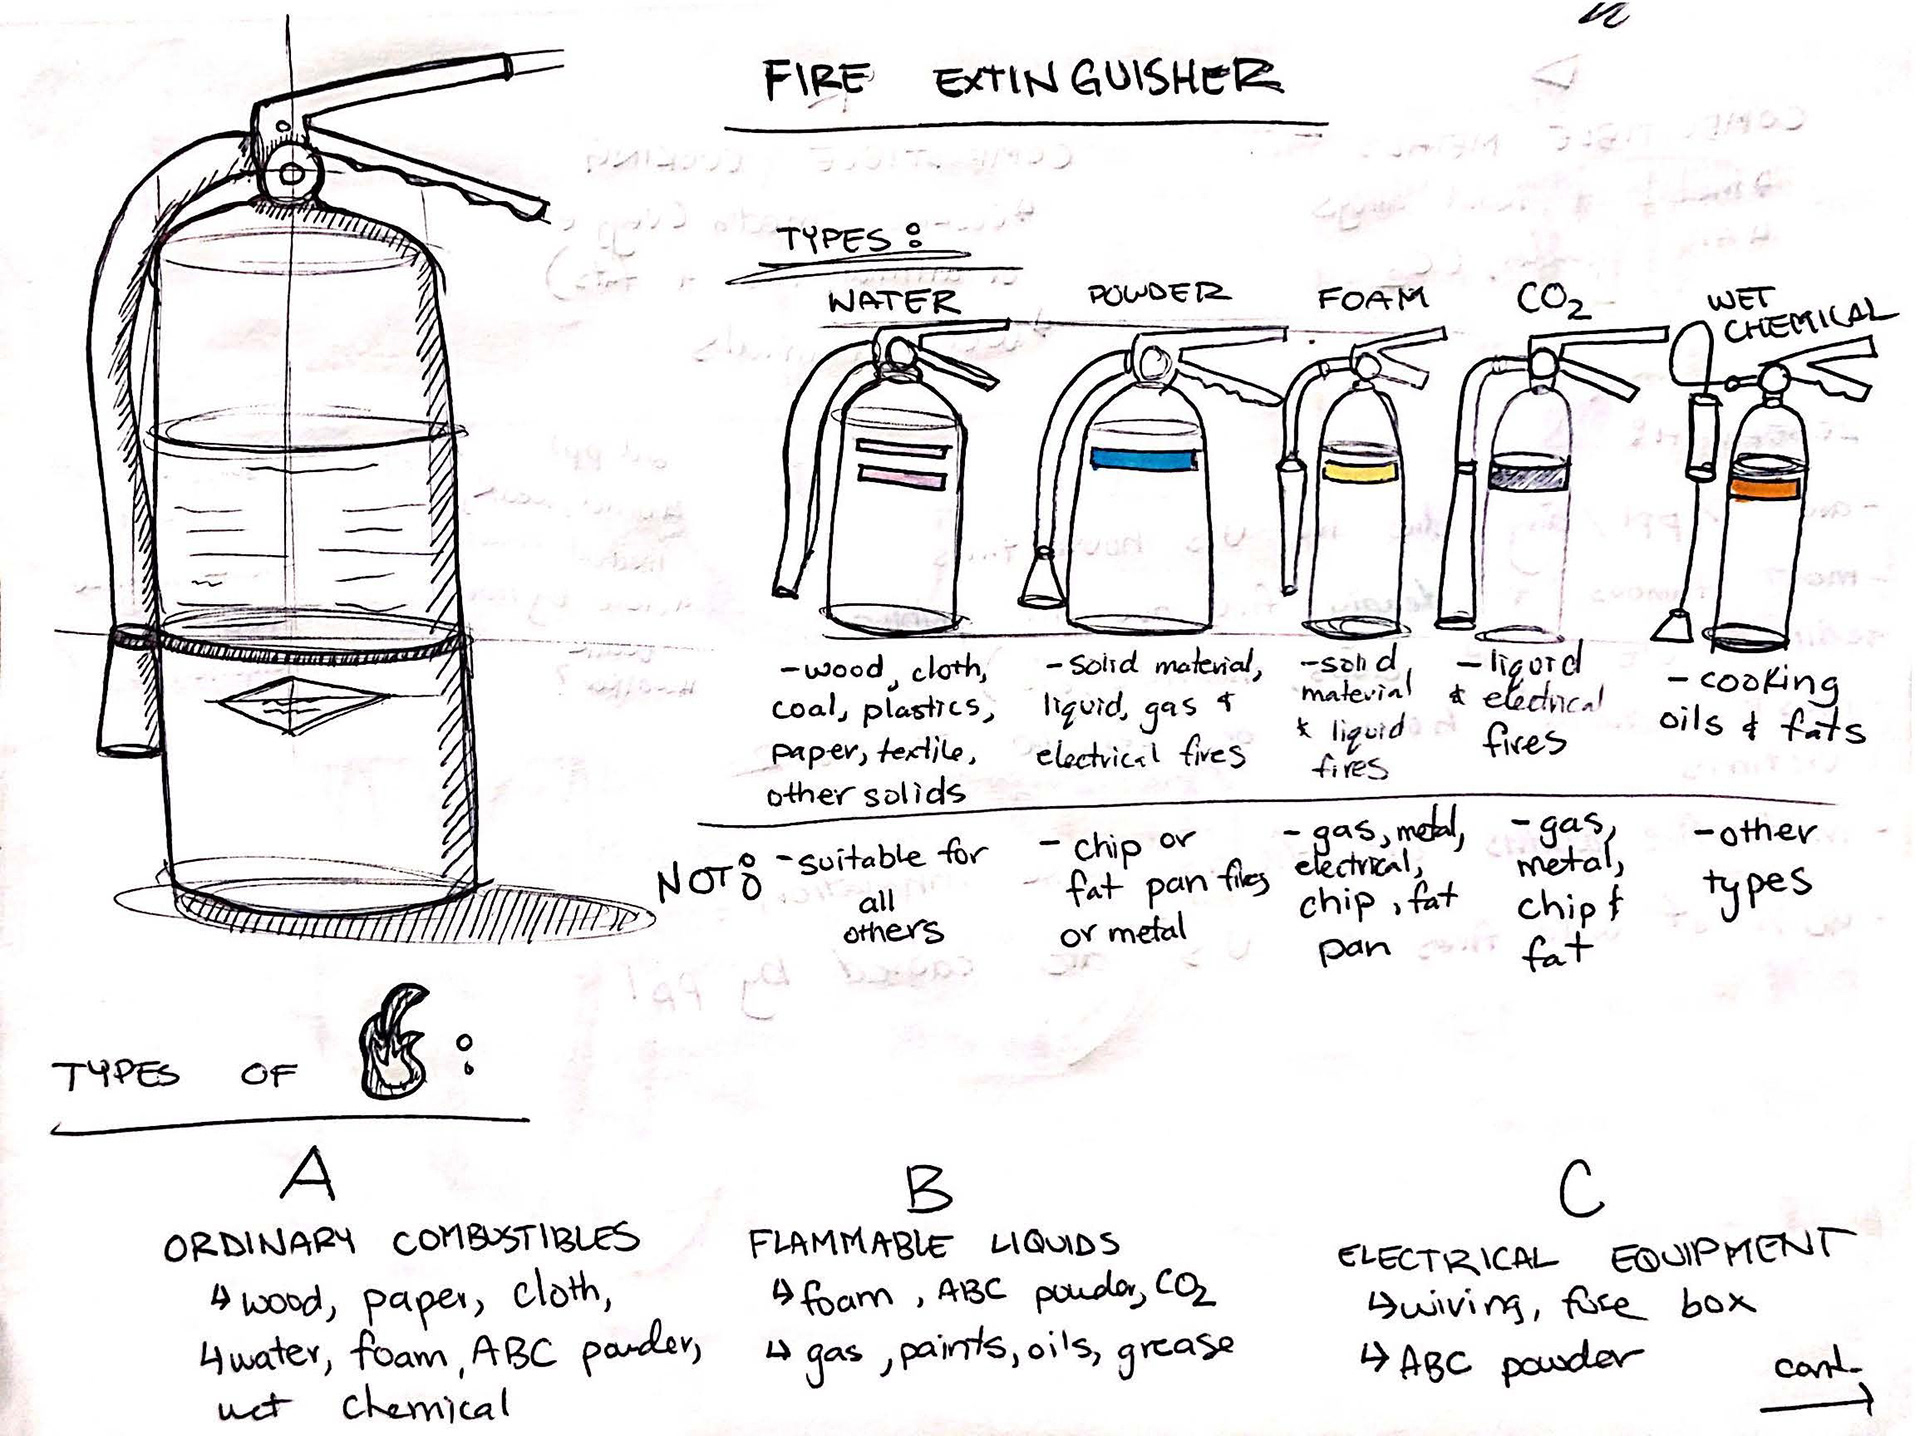 FIRE EXTINGUISHER
TYPES:
WATER
- wood, cloth,
coal, plastics,
paper, textile,
other solids
POWDER
- solid material,
liquid, gas &
electrical fires
FOAM
- solid
material
& liquid
fires
CO2
- liquid
& electrical
fires
WET
CHEMICAL
- cooking
oils & fats
NOT:
- suitable for
all
others
- chip or
fat pan fires
or metal
- gas, metal,
electrical,
chip, fat
pan
- gas,
metal,
chip &
fat
- other
types
TYPES OF :
A
ORDINARY COMBUSTIBLES
↳ wood, paper, cloth,
↳ water, foam, ABC powder,
wet chemical
B
FLAMMABLE LIQUIDS
↳ foam, ABC powder, CO2
↳ gas, paints, oils, grease
C
ELECTRICAL EQUIPMENT
↳ wiring, fuse box
↳ ABC powder
cont. →